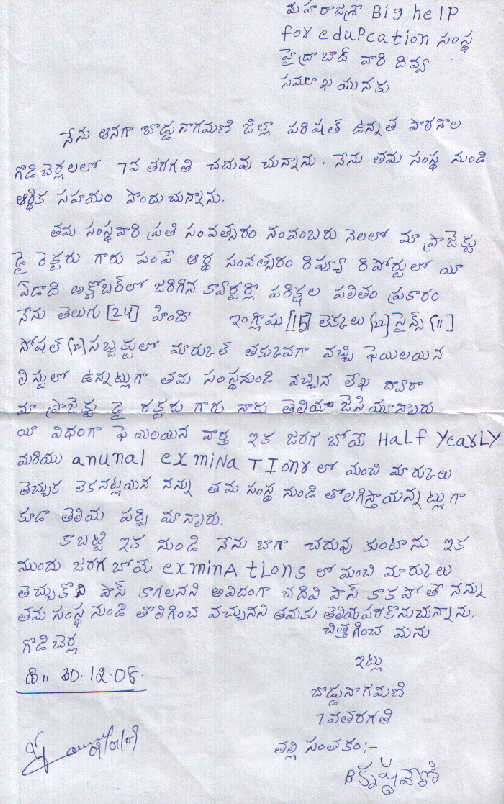 మహారాజశ్రీ Big help
for eduPcation సంస్థ
హైద్రాబాద్ వారి దివ్య
సముఖమునకు
నేను అనగా బొడ్డు నాగమణి జిల్లా పరిషత్ ఉన్నత పాఠశాల
గొడిచెర్లలలో 7వ తరగతి చదువు చున్నాను. నేను తమ సంస్థ నుండి
ఆర్థిక సహాయం పొందుచున్నాను.
తమ సంస్థవారి ప్రతి సంవత్సరం నవంబరు నెలలో మా ప్రాజెక్టు
డైరెక్టరు గారు పంపే అర్థ సంవత్సరం రివ్యూ రిపోర్టులో యీ
ఏడాది అక్టోబర్‌లో జరిగిన క్వార్టర్లీ పరీక్షల ఫలితం ప్రకారం
నేను తెలుగు [24] హిందీ ఇంగ్లీషు [15] లెక్కలు సైన్స్ [11]
సోషల్ సబ్జెక్టులో మార్కుల్ తక్కువగా వచ్చి ఫెయిలయిన
లిస్టులో ఉన్నట్లుగా తమ సంస్థనుండి వచ్చిన లేఖ ద్వారా
మా ప్రాజెక్టు డైరెక్టరు గారు నాకు తెలియ జేసియున్నారు
యీ విధంగా ఫెయిలయిన వార్త ఇక జరగ బోయే Half Yearly
మరియు anunal exmina TIons లో మంచి మార్కులు
తెచ్చుక లేకనట్లయిన నన్ను తమ సంస్థ నుండి తొలగిస్తాయన్నట్లుగా
కూడా తెలియ పర్చి యున్నారు.
కాబట్టి ఇక నుండి నేను బాగా చదువు కుంటాను ఇక
ముందు జరగ బోయే exminA tIons లో మంచి మార్కులు
తెచ్చుకొని పాస్ కాగలనని అవిధంగా చదివి పాస్ కాక పోతే నన్ను
తమ సంస్థ నుండి తొలిగించ వచ్చునని తమకు తెలియపరచుకొనుచున్నాను.
చిత్తగించ మను
గొడిచెర్ల
ఇట్లు
తే॥ 30.12.08.
బొడ్డు నాగమణి
7వతరగతి
తల్లి సంతకం:-